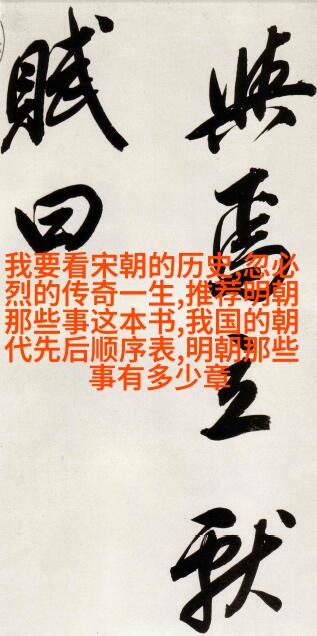 與焉立
賦曰
我要看宋朝的历史,忽必
烈的传奇一生,推荐明朝
那些事这本书,我国的朝
代先后顺序表,明朝那些
事有多少章